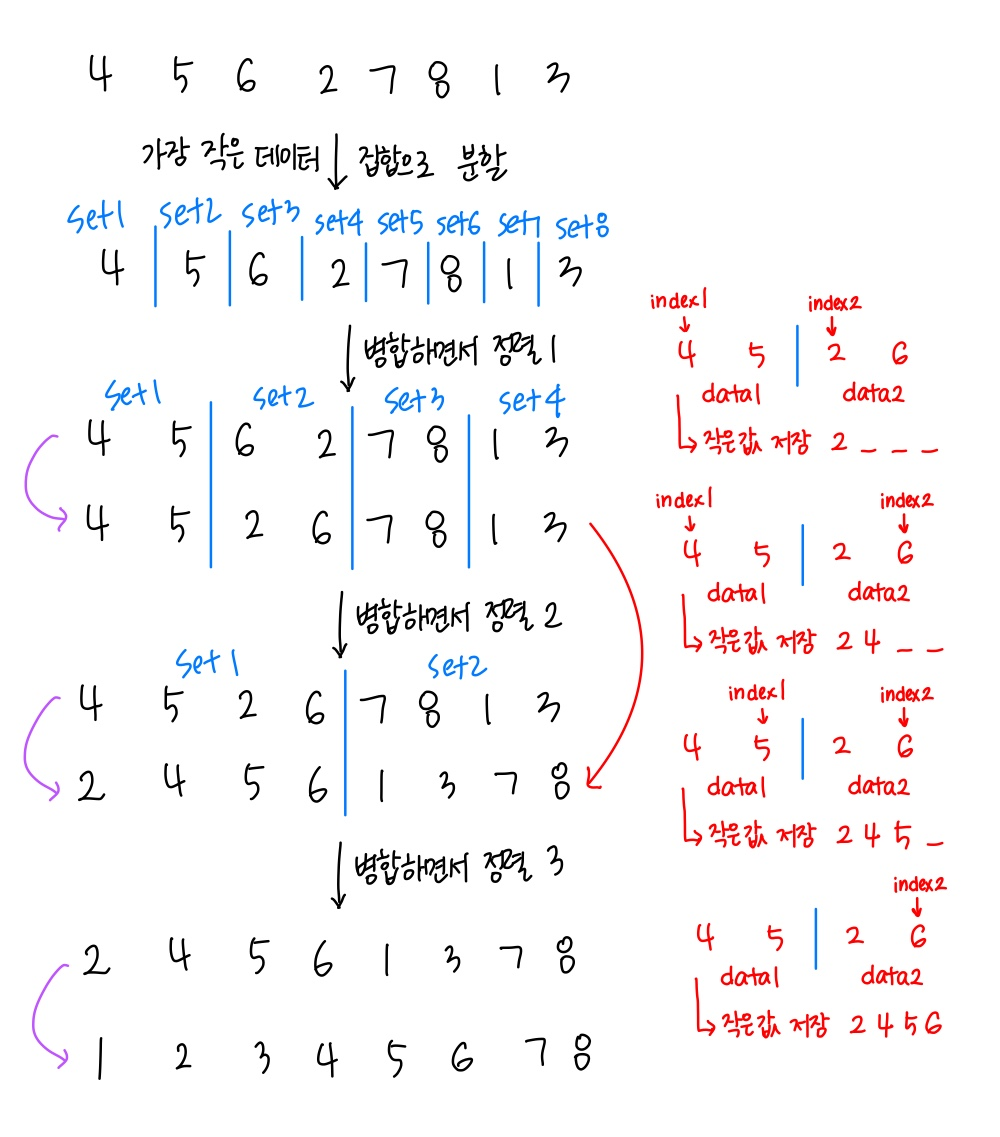 4 5 6 2 7 8 1 3
가장 작은 데이터 집합으로 분할
set1 set2 set3 set4 set5 set6 set7 set8
4 5 6 2 7 8 1 3
병합하면서 정렬 1
set1 set2 set3 set4
4 5 6 2 7 8 1 3
4 5 2 6 7 8 1 3
병합하면서 정렬 2
set1 set2
4 5 2 6 7 8 1 3
2 4 5 6 1 3 7 8
병합하면서 정렬 3
2 4 5 6 1 3 7 8
1 2 3 4 5 6 7 8
index1 index2
4 5 2 6
data1 data2
작은값 저장 2 _ _ _
index1 index2
4 5 2 6
data1 data2
작은값 저장 2 4 _ _
index1 index2
4 5 2 6
data1 data2
작은값 저장 2 4 5 _
index2
4 5 2 6
data1 data2
작은값 저장 2 4 5 6